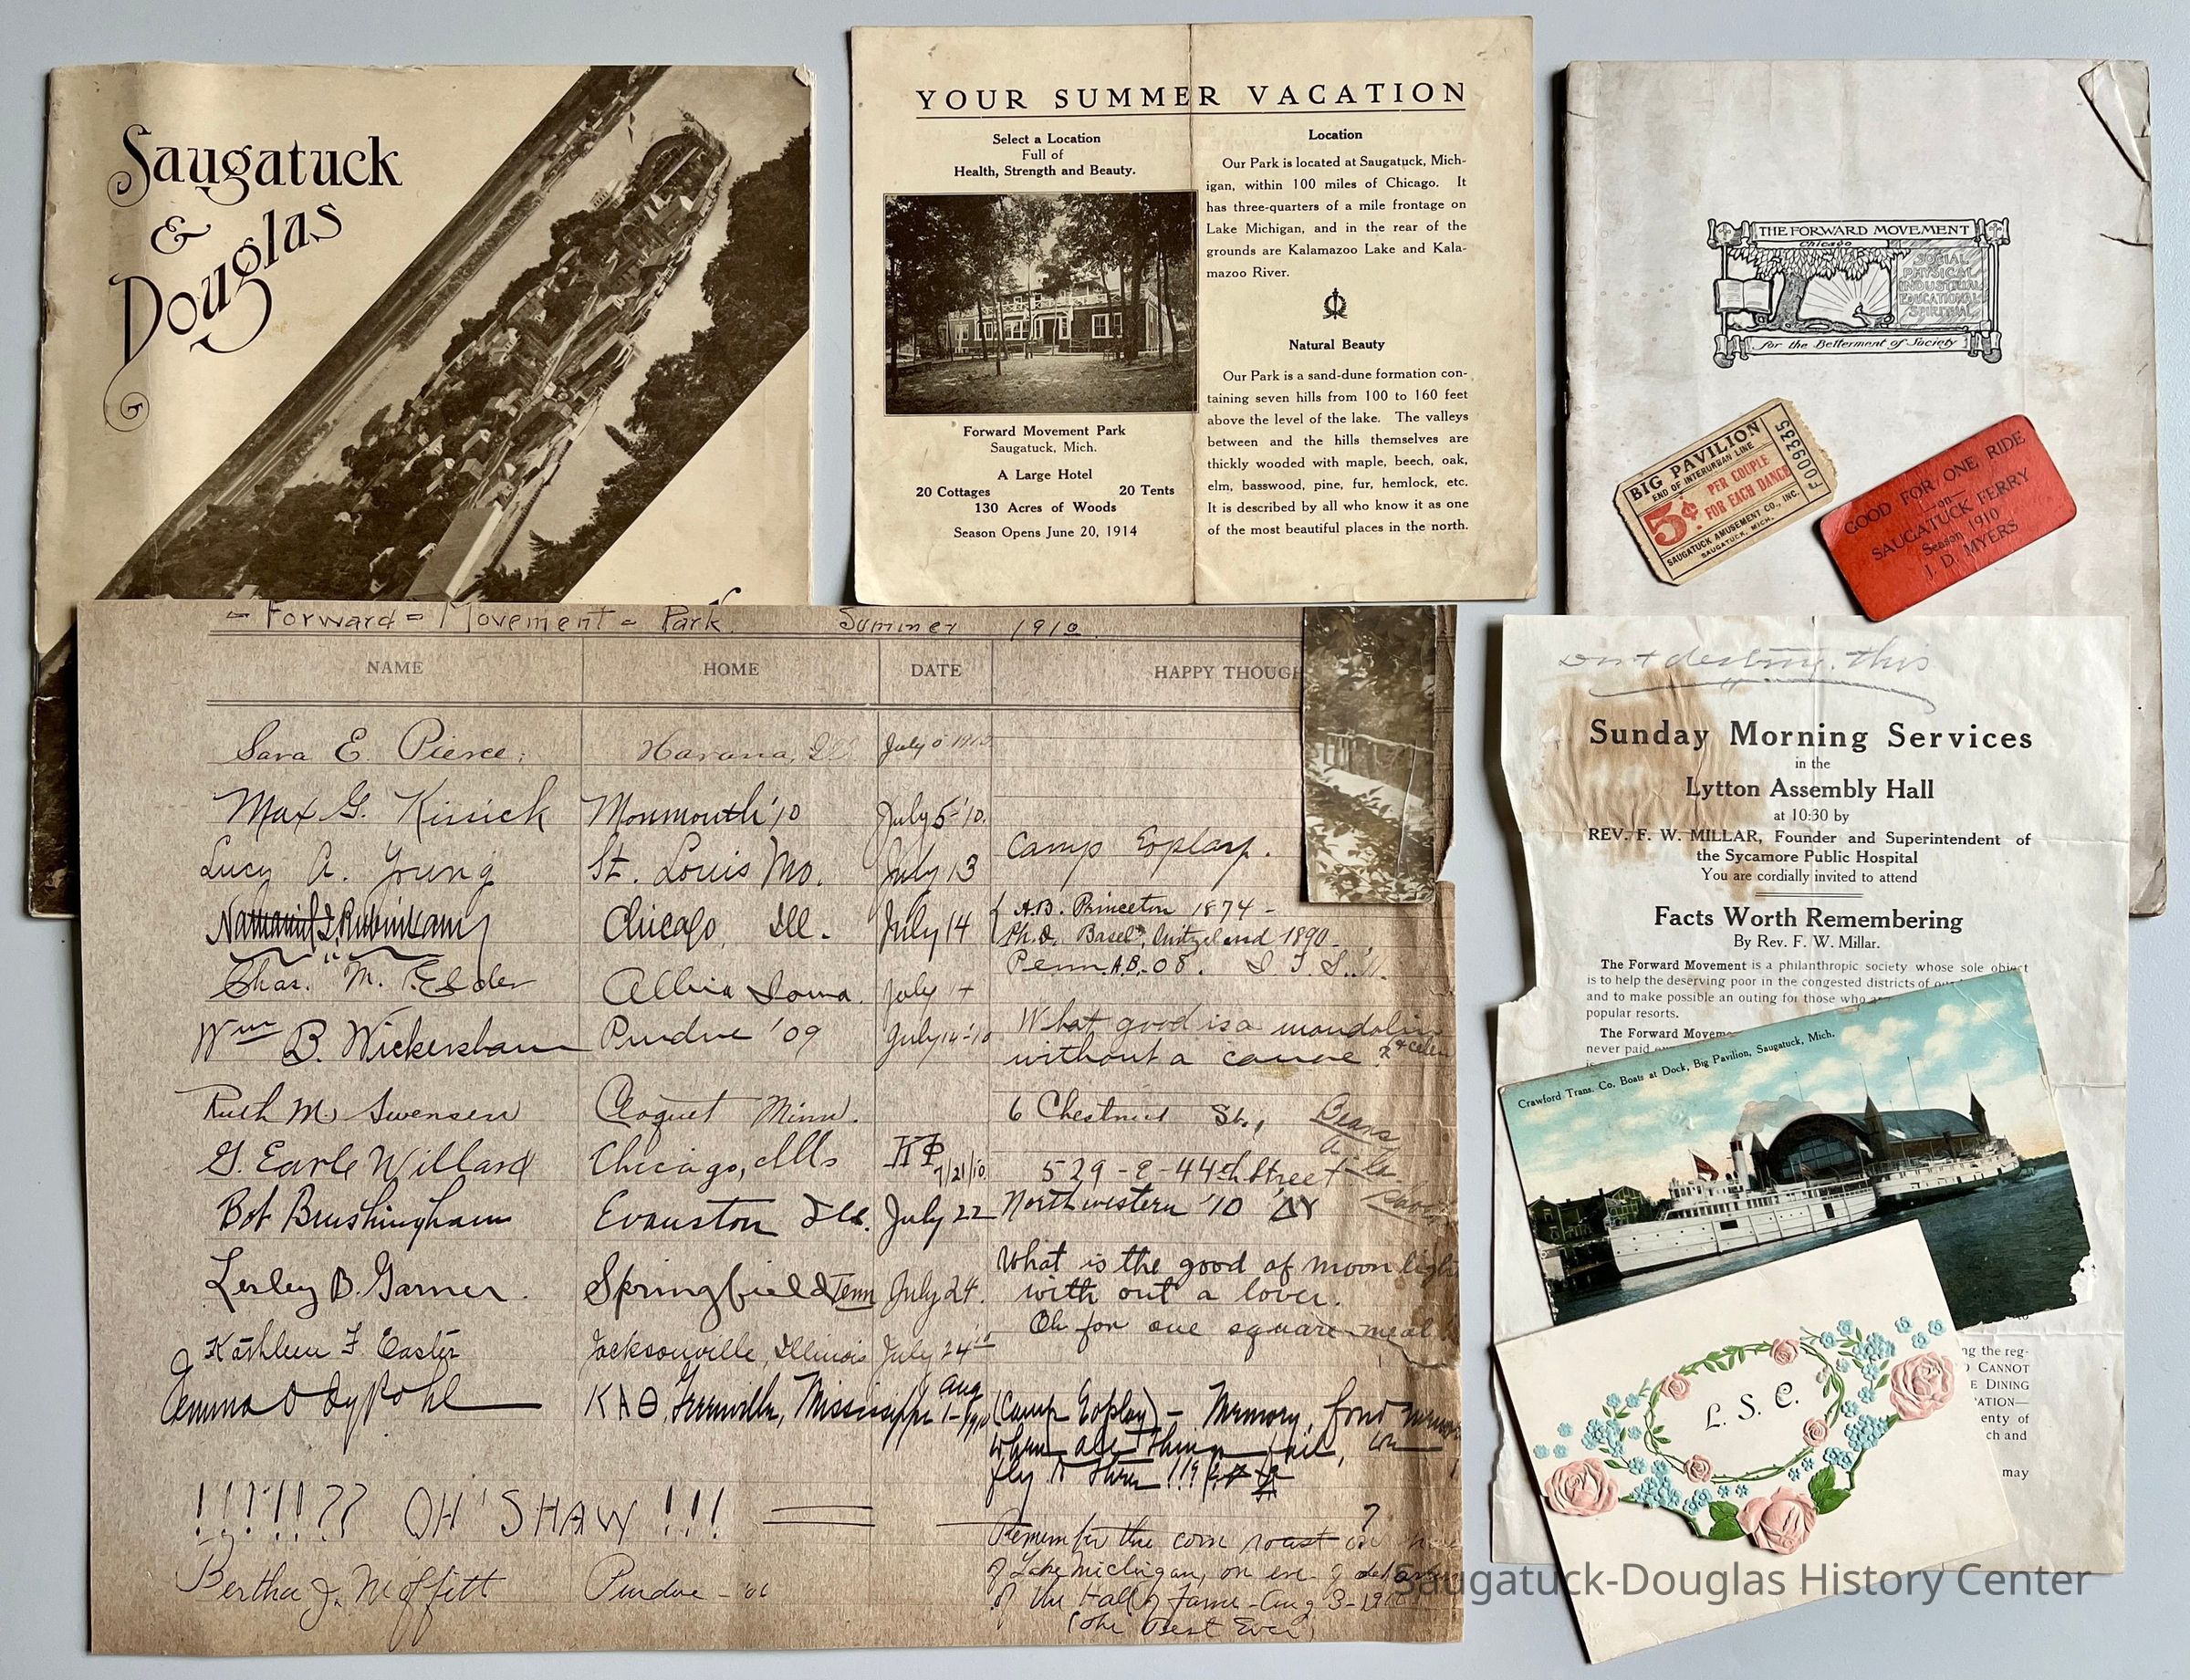 Saugatuck
&
Douglas
YOUR SUMMER VACATION
Select a Location
Full of
Health, Strength and Beauty.
Forward Movement Park
Saugatuck, Mich.
A Large Hotel
20 Cottages 20 Tents
130 Acres of Woods
Season Opens June 20, 1914
Location
Our Park is located at Saugatuck, Mich-
igan, within 100 miles of Chicago. It
has three-quarters of a mile frontage on
Lake Michigan, and in the rear of the
grounds are Kalamazoo Lake and Kala-
mazoo River.
Natural Beauty
Our Park is a sand-dune formation con-
taining seven hills from 100 to 160 feet
above the level of the lake. The valleys
between and the hills themselves are
thickly wooded with maple, beech, oak,
elm, basswood, pine, fur, hemlock, etc.
It is described by all who know it as one
of the most beautiful places in the north.
THE FORWARD MOVEMENT
Chicago
SOCIAL
PHYSICAL
INDUSTRIAL
EDUCATIONAL
SPIRITUAL
for the Betterment of Society
BIG PAVILION
END OF INTERURBAN LINE
5¢ PER COUPLE
FOR EACH DANCE
SAUGATUCK AMUSEMENT CO., INC.
SAUGATUCK, MICH.
F009335
GOOD FOR ONE RIDE
—on—
SAUGATUCK FERRY
Season 1910
J. D. MYERS
- Forward = Movement = Park. Summer 1910.
NAME HOME DATE HAPPY THOUGH
Sara E. Pierce; Havana, Ill July 5 1910
Max G. Kissick Monmouth '10 July 5-'10.
Lucy A. Young St. Louis Mo. July 13 Camp Explarp.
Nathaniel I. Rubinkam Chicago, Ill. July 14 A.B. Princeton 1874 -
Ph.D. Basel, Switzerland 1890
Chas. M. Elder Albia Iowa. July 14 Penn. A.B.-08.
Wm B. Wickersham Purdue '09 July 14-'10 What good is a mandolin
without a canoe?
Ruth M. Swensen Cloquet Minn. 6 Chestnut St.,
Beans
G. Earle Willard Chicago, Ills 7/21/10. 529-E-44th Street
Bob Brushingham Evanston Ill. July 22 Northwestern '10 ΔΥ
Lesley B. Garner. Springfield Tenn July 24. What is the good of moonligh
with out a lover.
Kathleen F. Easter Jacksonville, Illinois July 24 '10 Oh for one square meal!
Emma O LyPohl ΚΑΘ, Greenville, Mississippi Aug 1-1910 (Camp Explay) - Memory, fond
when all things fail, we
fly to them !!!
!!!!!!?? OH 'SHAW !!!
Bertha J. Moffitt Purdue - '06 Remember the corn roast on
of Lake Michigan, on eve of
of the Hall of Fame - Aug 3-1910
(The Best Ever)
Don't destroy this
Sunday Morning Services
in the
Lytton Assembly Hall
at 10:30 by
REV. F. W. MILLAR, Founder and Superintendent of
the Sycamore Public Hospital
You are cordially invited to attend
Facts Worth Remembering
By Rev. F. W. Millar.
The Forward Movement is a philanthropic society whose sole object
is to help the deserving poor in the congested districts of
and to make possible an outing for those who
popular resorts.
The Forward Movem
never paid
Crawford Trans. Co. Boats at Dock, Big Pavilion, Saugatuck, Mich.
ng the reg-
CANNOT
E DINING
ATION—
enty of
ch and
may
L. S. C.
Saugatuck-Douglas History Center